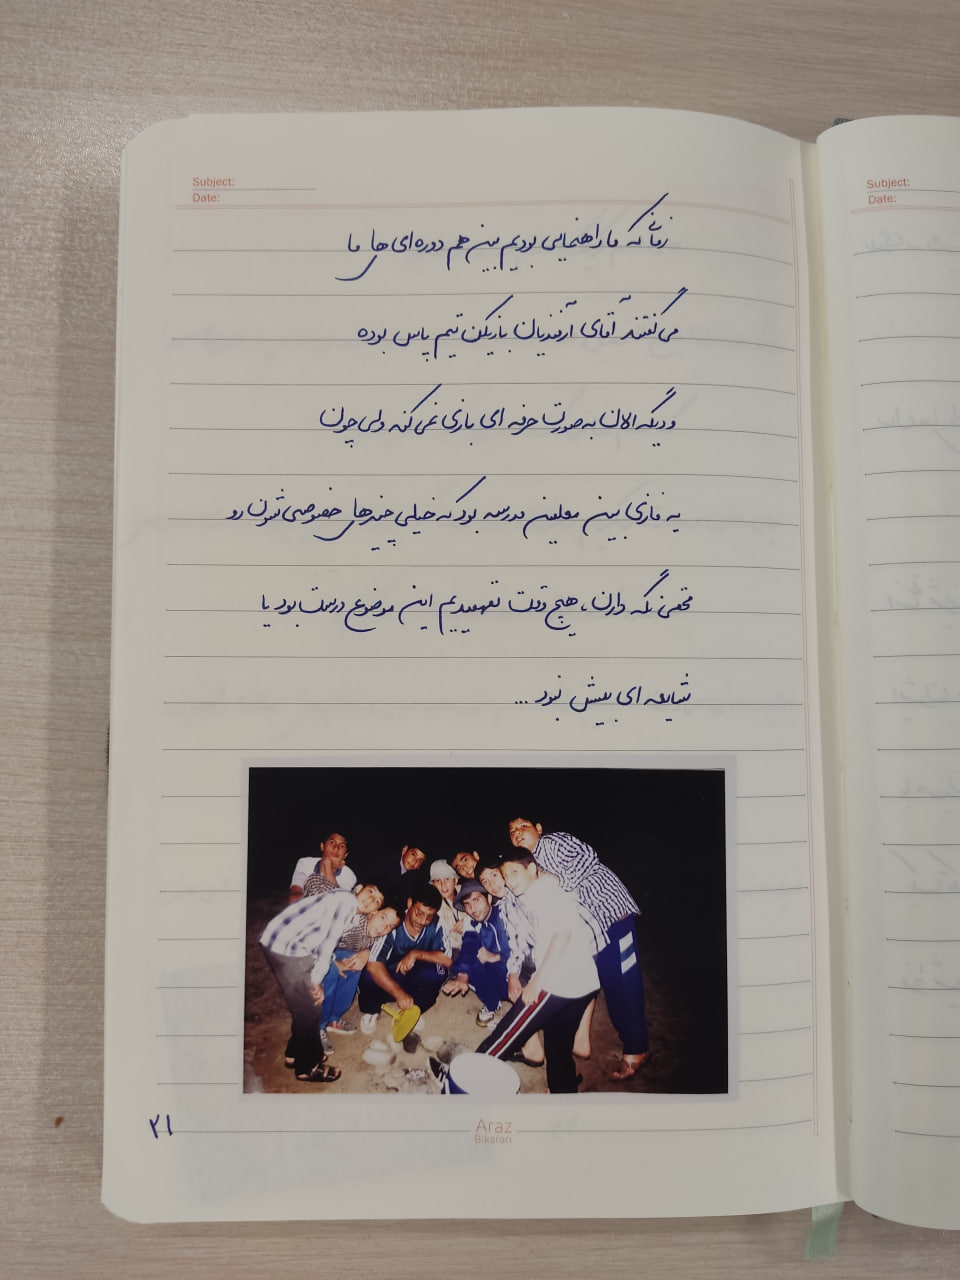 Subject:
Date:
زمانی که ما راهنمایی بودیم بین هم دوره ای های ما
می گفتند آقای آرفندیان بازیکن تیم پاس بوده
و دیگه الان به صورت حرفه ای بازی نمی کنه ولی چون
یه فازی بین معلمین مدرسه بود که خیلی چیزهای خصوصی شون رو
مخفی نگه دارن، هیچ وقت نفهمیدیم این موضوع درست بود یا
شایعه ای بیش نبود ...
۲۱
Araz
Bikaran
Subject:
Date: